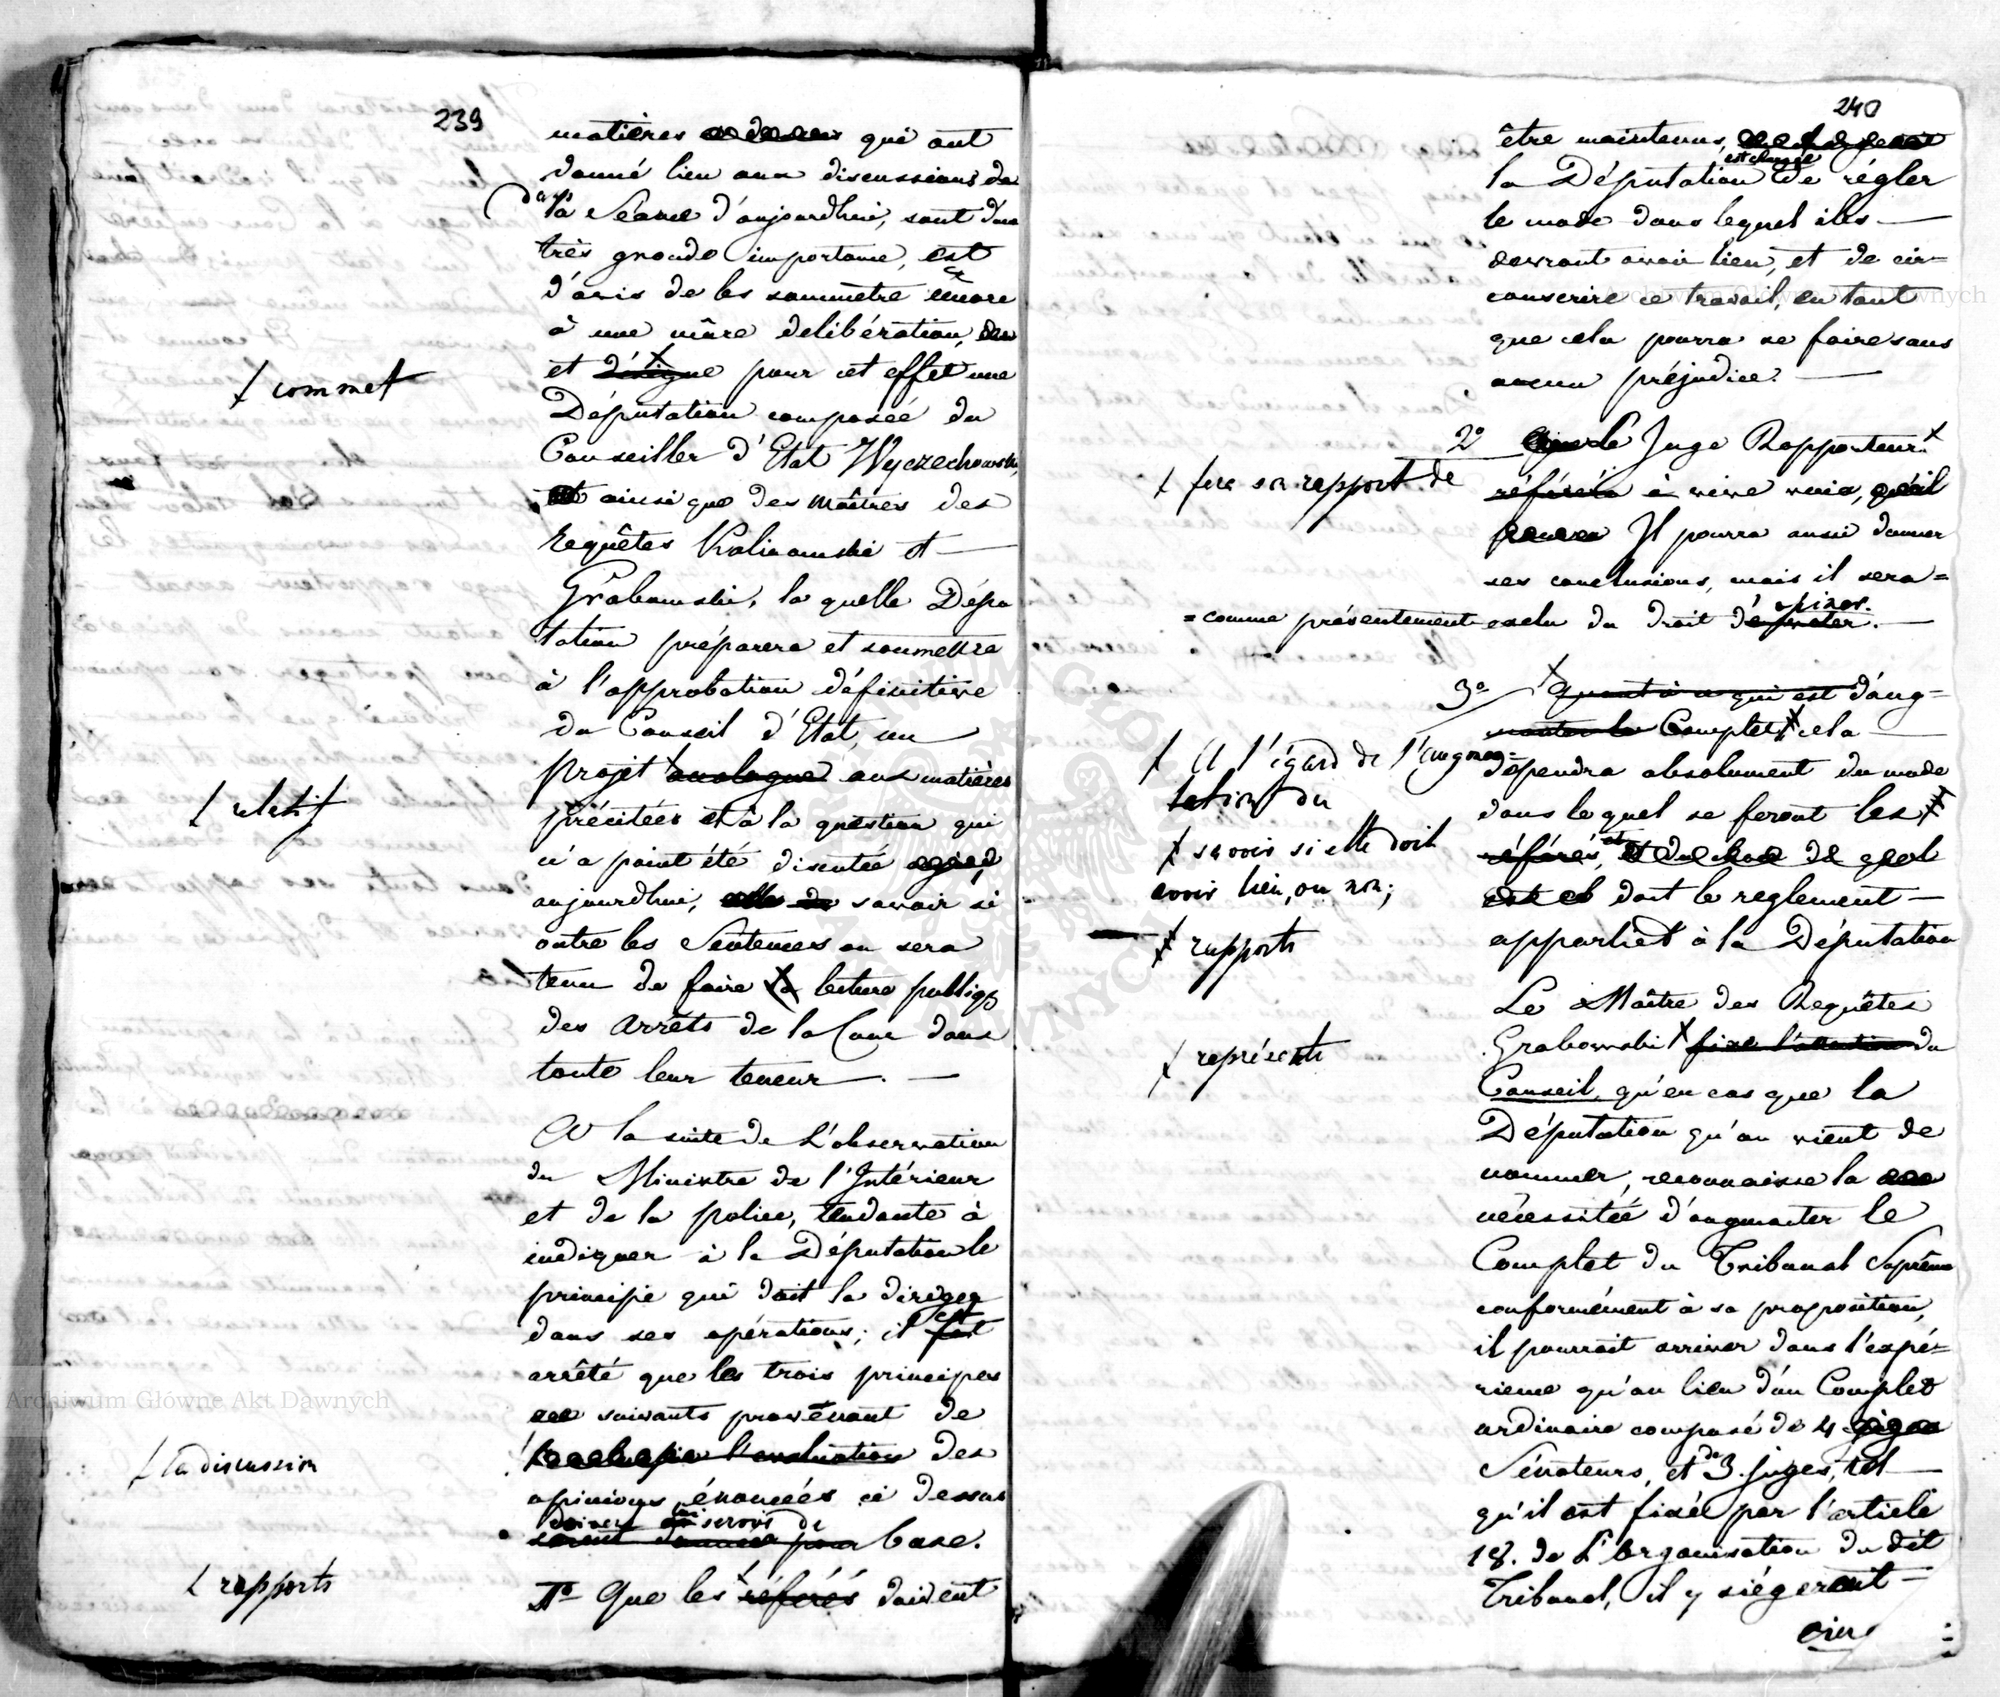 239
matières qui ont
donné lieu aux discussions de
dans
la Séance d'aujourdhui, sont d'une
très grande importance, est
d'avis de les soummetre encore
à une mûre delibération,
et désigne pour cet effet une
✝ commet
Députation composée du
Conseiller d'Etat Wyczechowski,
ainsi que des Maîtres des
requêtes Kalinowski et
Grabowski, la quelle Dépu
tation préparera et soumettra
à l'approbation définitive
du Conseil d'Etat, un
projet analogue aux matières
✝ relatif
précitées et à la question qui
n'a point été discutée
aujourdhui, savoir si
outre les Sentences on sera
tenu de faire la lecture publiqe
des Arrêts de la Cour dans
toute leur teneur.
A la suite de L'observation
du Ministre de l'Intérieur
et de la police, tendante à
indiquer à la Députation le
principe qui doit la diriger
dans ses opérations; il fut
est
arrêté que les trois principes
suivants provenant de
l'évaluation des
✝ la discussion
opinions énoncées ci dessus
doivent servir de
seront pour base.
1º Que les référés doivent
✝ rapports
240
être maintenus,
est chargée
la Députation de régler
le mode dans lequel ils
devront avoir lieu, et de cir=
conscrire ce travail, en tant
que cela pourra se faire sans
aucun préjudice.
2º Que le Juge Rapporteur
✝ fera son rapport de
référera à vive voix, qu'il
Il pourra aussi donner
ses conclusions, mais il sera=
=comme présentement exclu du droit d'opiner.
3º Quant à ce qui est d'aug=
menter le Complet cela
✝ A l'égard de l'augmen=
tation du
dépendra absolument du mode
dans lequel se feront les
✝ savoir si elle doit
avoir lieu, ou non;
référés, et
dont le reglement
✝ rapports
appartient à la Députation
Le Maître des Requêtes
Grabowski fixe l'attention du
✝ représente
Conseil, qu'en cas que la
Députation qu'on vient de
nommer, reconnaisse la
nécessitée d'augmenter le
Complet du Tribunal Suprême
conformément à sa proposition,
il pourrait arriver dans l'expé=
rience qu'au lieu d'un Complet
ordinaire composé de 4
Sénateurs, et de 3 juges, tel
qu'il est fixée par l'article
18. de L'Organisation du dit
Tribunal, il y siégeront
Archiwum Główne Akt Dawnych
Archiwum Główne Akt Dawnych